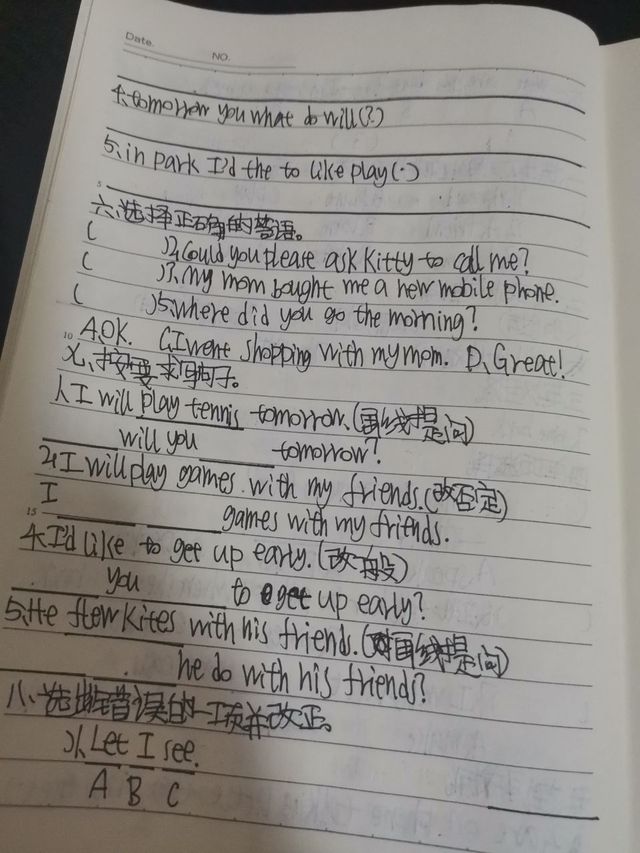 Date.
NO.
4、tomorrow you what do will(?)
5、in park I'd the to like play(.)
5
六、选择正确的答语。
( )2、Could you please ask Kitty to call me?
( )3、My mom bought me a new mobile phone.
( )5、Where did you go the morning?
10 A、OK. C、I went shopping with my mom. D、Great!
七、按要求写句子。
1、I will play tennis tomorrow.(画线提问)
will you tomorrow?
2、I will play games with my friends.(改否定)
15 I games with my friends.
4、I'd like to get up early.(改一般)
you to get up early?
5、He flew kites with his friends.(对画线提问)
he do with his friends?
八、选出错误的一项并改正。
)1、Let I see.
A B C